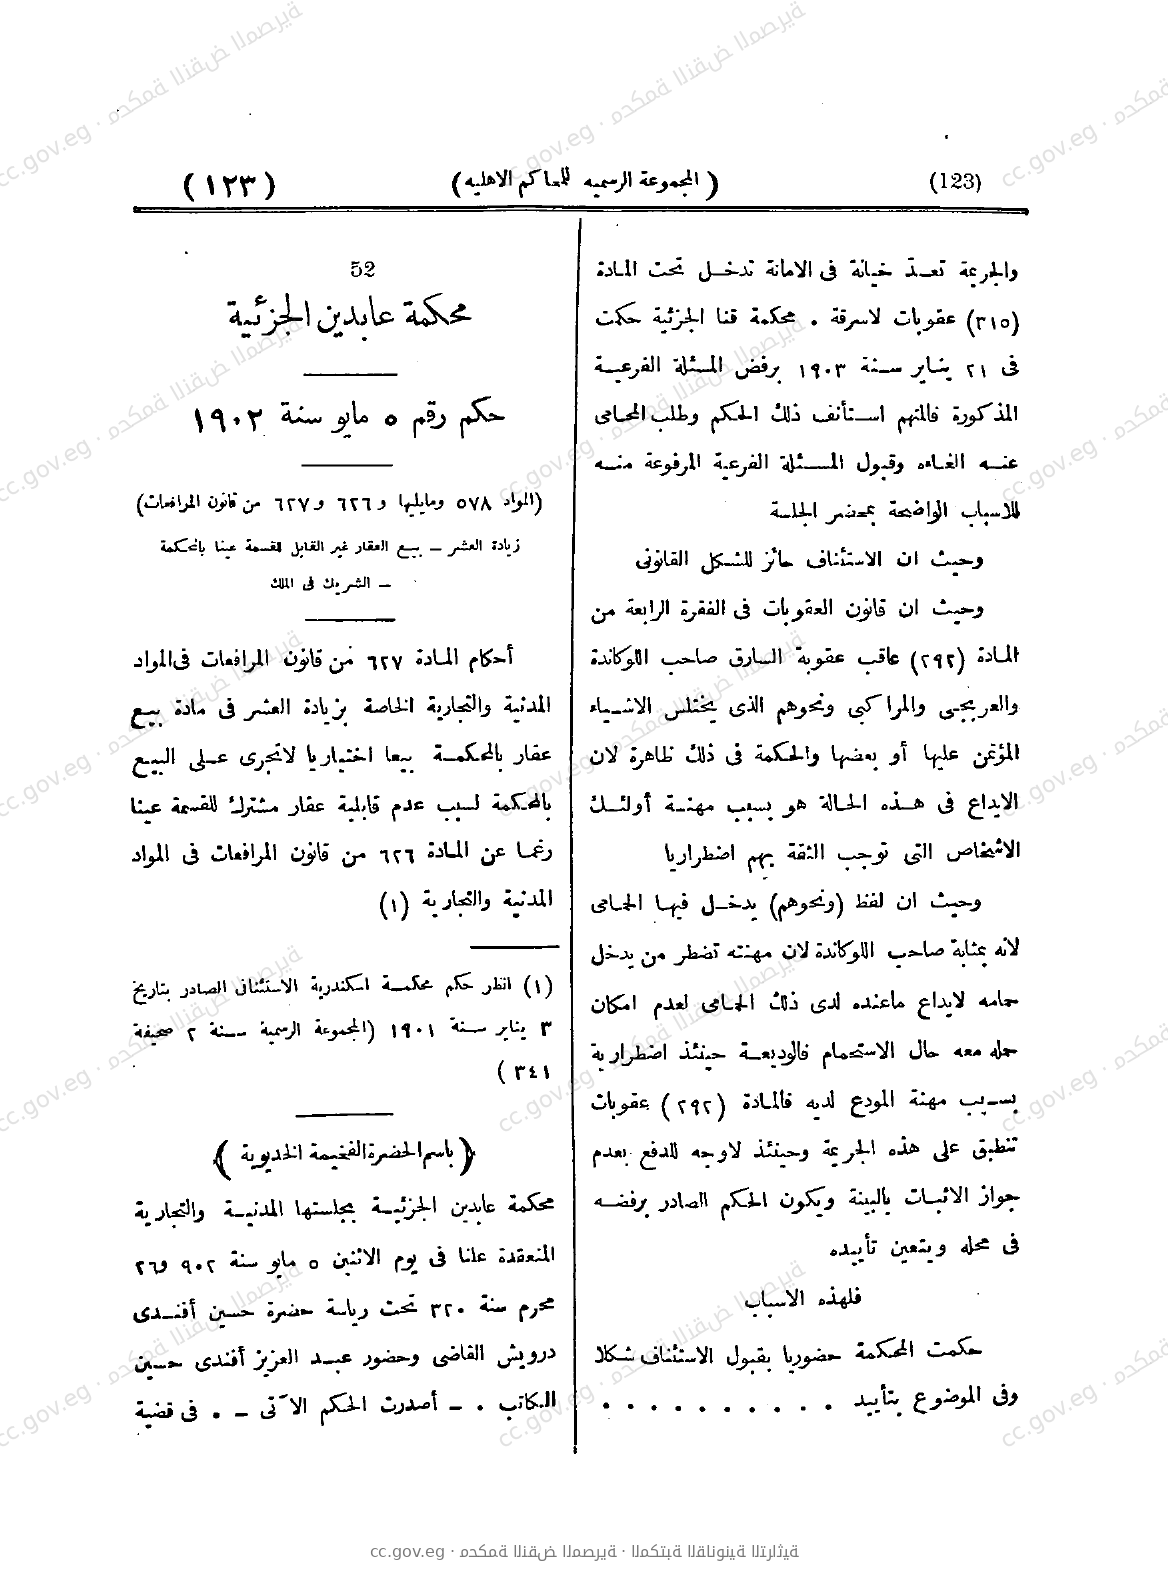 (123) (المجموعة الرسميه للمحاكم الاهليه) (١٢٣)
والجريمة تعـد خيانة فى الامانة تدخـل تحت المادة
(٣١٥) عقوبات لاسرقة . محكمة قنا الجزئية حكمت
فى ٢١ يناير سـنة ١٩٠٣ برفض المسئلة الفرعيـة
المذكورة فالمتهم اسـتأنف ذلك الحكم وطلب المحامى
عنـه الغـاءه وقبول المسـئلة الفرعية المرفوعة منـه
للاسباب الواضحة بمحضر الجلسة
وحيث ان الاستئناف حائز للشكل القانونى
وحيث ان قانون العقوبات فى الفقرة الرابعة من
المادة (٢٩٢) عاقب عقوبة السارق صاحب اللوكاندة
والعربجـى والمراكبى ونحوهم الذى يختلس الاشـياء
المؤتمن عليها أو بعضها والحكمة فى ذلك ظاهرة لان
الايداع فى هـذه الحالة هو بسبب مهنـة أولئـك
الاشخاص التى توجب الثقة بهم اضطراريا
وحيث ان لفظ (ونحوهم) يدخـل فيهـا الحمامى
لانه بمثابة صاحب اللوكاندة لان مهنته تضطر من يدخل
حمامه لايداع ماعنده لدى ذلك الحمـامى لعدم امكان
حمله معه حال الاستحمام فالوديعـة حينئذ اضطرارية
بسـبب مهنة المودع لديه فالمـادة (٢٩٢) عقوبات
تنطبق على هذه الجريمة وحينئذ لاوجه للدفع بعدم
جواز الاثبـات بالبينة ويكون الحكم الصادر برفضـه
فى محله ويتعين تأييده
فلهذه الاسباب
حكمت المحكمة حضوريا بقبول الاستئناف شكلا
وفى الموضوع بتأييد . . . . . . . . . .
52
محكمة عابدين الجزئية
حكم رقم ٥ مايو سنة ١٩٠٢
(المواد ٥٧٨ ومايليها و٦٢٦ و٦٢٧ من قانون المرافعات)
زيادة العشر – بيـع العقار غير القابل للقسمة عينا بالمحكمة
– الشريك فى الملك
أحكام المـادة ٦٢٧ من قانون المرافعات فى المواد
المدنية والتجارية الخاصة بزيادة العشر فى مادة بيـع
عقار بالمحكمـة بيعا اختياريا لاتجرى عـلى البيـع
بالمحكمة لسبب عدم قابلية عقار مشترك للقسمة عينا
رغمـا عن المـادة ٦٢٦ من قانون المرافعات فى المواد
المدنية والتجارية (١)
(١) انظر حكم محكمـة اسكندرية الاستئنافى الصادر بتاريخ
٣ يناير سـنة ١٩٠١ (المجموعة الرسمية سـنة ٢ صحيفة
٣٤١ )
(باسم الحضرة الفخيمة الخديوية)
محكمة عابدين الجزئيـة بجلستها المدنيـة والتجارية
المنعقدة علنا فى يوم الاثنين ٥ مايو سنة ٩٠٢ و٢٦
محرم سنة ٣٢٠ تحت رياسة حضرة حسين أفنـدى
درويش القاضى وحضور عبـد العزيز أفندى حسـين
الـكاتب . – أصدرت الحكم الآتى – . فى قضية